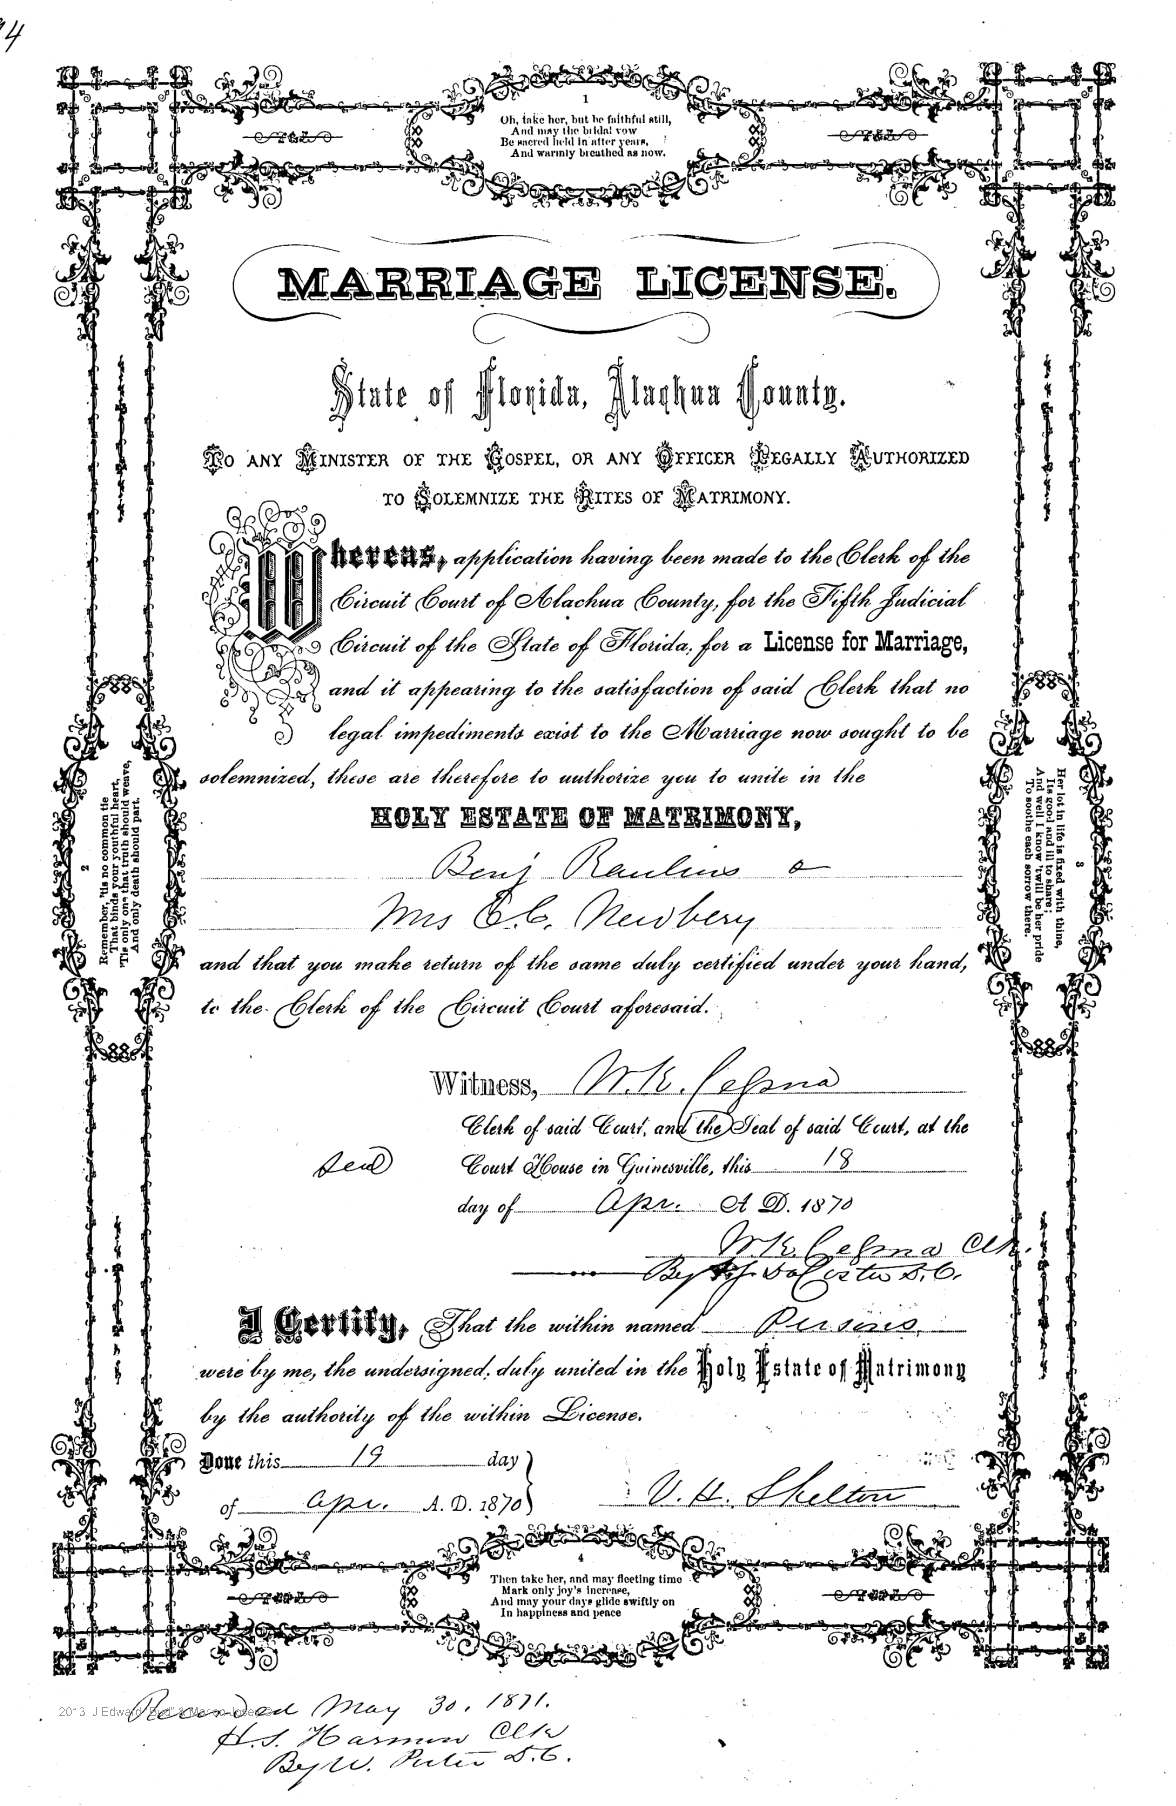 1
Oh, take her, but be faithful still,
And may the bridal vow
Be sacred held in after years,
And warmly breathed as now.
MARRIAGE LICENSE.
State of Florida, Alachua County.
TO ANY MINISTER OF THE GOSPEL, OR ANY OFFICER LEGALLY AUTHORIZED
TO SOLEMNIZE THE RITES OF MATRIMONY.
Whereas, application having been made to the Clerk of the
Circuit Court of Alachua County, for the Fifth Judicial
Circuit of the State of Florida, for a License for Marriage,
and it appearing to the satisfaction of said Clerk that no
legal impediments exist to the Marriage now sought to be
solemnized, these are therefore to authorize you to unite in the
HOLY ESTATE OF MATRIMONY,
Benj Raulins
Mrs C. Newbery
and that you make return of the same duly certified under your hand,
to the Clerk of the Circuit Court aforesaid.
2
Remember, 'tis no common tie
That binds your youthful heart,
'Tis only one that truth should weave,
And only death should part.
3
Her lot in life is fixed with thine,
Its good and ill to share;
And well I know 'twill be her pride
To soothe each sorrow there.
Witness, W. K. Cessna
Clerk of said Court, and the Seal of said Court, at the
seal Court House in Gainesville, this 18
day of Apr. A D. 1870
W K Cessna Clk.
By D. C.
I Certify, That the within named Persons
were by me, the undersigned, duly united in the Holy Estate of Matrimony
by the authority of the within License.
Done this 19 day
of Apr. A. D. 1870
V. H. Shelton
4
Then take her, and may fleeting time
Mark only joy's increase,
And may your days glide swiftly on
In happiness and peace
Recorded May 30. 1871.
H. S. Harmon Clk
By W. D. C.